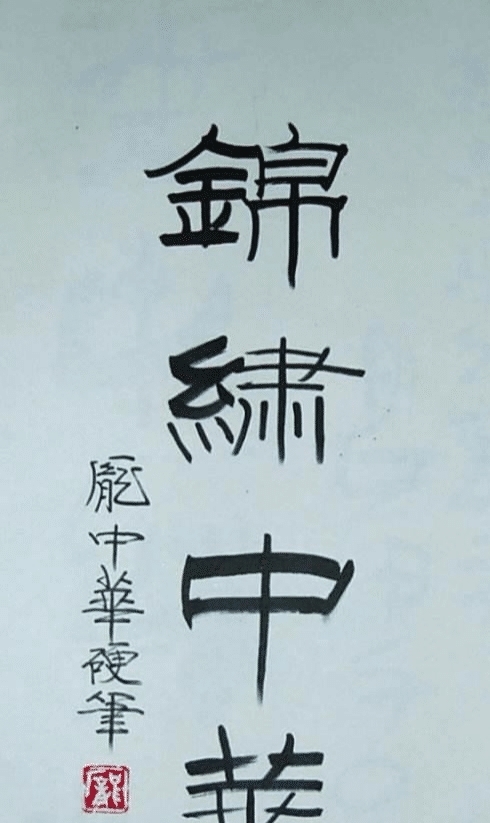 錦繡中華
龐中華硬筆
龐